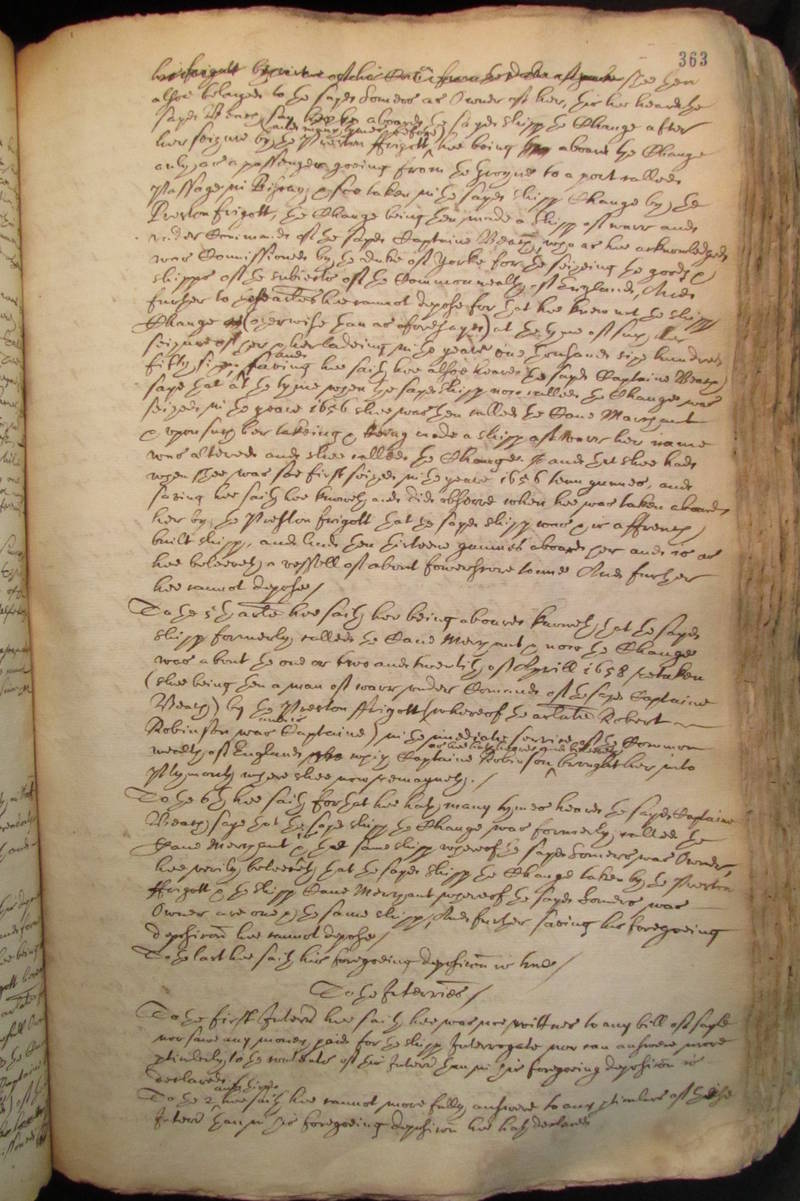 363
shee then
alsoe belonged to the sayd Somers as Owner of her, for hee heard the
sayd Beary say aboard the sayd shipp the Change after
her seizure by the Preston ffrigott and many tymes before, hee being aboard the Change
only as a passenger going from the Groyne to a port called
Passage in Biscay, & soe taken in the sayd shipp Change by the
Preston frigott, the Change being then made a shipp of warr and
under Command of the sayd Captaine Beary, who as hee acknowledged
was Comissioned by the duke of Yorke for the seizeing the goods &
shipps of the subiects of the Commonwealth of England, And
further to these articles hee cannot depose for that hee knew not the shipp
Change (otherwise than as aforesayd) at the tyme of such her
seizure of her & her ladeing in the yeare one thousand sixe hundred
fifty sixe, and saving hee saith hee alsoe heard the sayd Captaine Beary
saye that at the tyme when the sayd shipp now called the Change was
seized in the yeare 1656 shee was then called the Dane Merchant
& upon such her takeing & being made a shipp of warr her name
was altered and shee called the Change. and that shee had
when shee was soe first seized in the yeare 1656 tenn gunnes, and
saving hee saith hee knoweth and did observe when hee was taken aboard
her by the Preston frigott that the sayd shipp was & is a ffrench
built shipp, and had then thirteene gunnes aboard her and is as
hee beleeveth a vessell of about fowerscore tonnes And further
hee cannot depose /
To the 5th article hee saith hee being aboard knoweth that the sayd
shipp formerly called the Dane Merchant & now the Change
was about the one or two and twentith of Aprill 1658 retaken
(shee being then a man of warr under Command of the sayd Captaine
Beary) by the Preston ffrigott (whereof the arlate Robert
Robinson was Captaine) in the imediate service of the Common
wealth of England which Captaine Robinson as hee hath heard and beleeveth brought her into
Plymouth where shee now remayneth. /
To the 6th hee saith for that hee hath many tymes heard the sayd Captaine
Beary saye that the sayd shipp the Change was formerly called the
Dane Merchant & is the same shipp whereof the sayd Somers was Owner,
hee verily beleeveth that the sayd shipp the Change taken by the Preston
ffrigott & the shipp Dane Merchant whereof the sayd Somers was
Owner are one & the same shipp, And further saving his foregoeing
deposition hee cannot depose /
To the last hee saith his foregoeing deposition is true /
To the Interries /
To the first Interrie hee saith hee was noe wittnes to any bill of sale
nor sawe any money paid for the shipp Interrogate nor can answere more
plinderly to the contents of this Interrie than in his foregoeing deposition is
declared
To the 2 hee saith hee cannot more fully answere to any pticulers of the
Interrie than in his foregoeing deposition hee hath declared